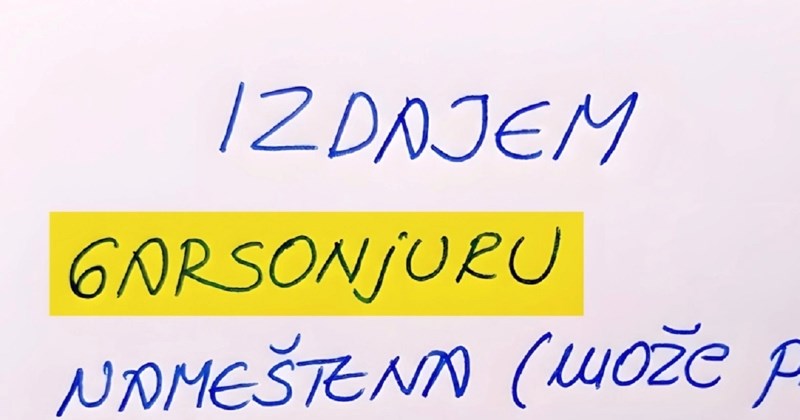 IZDAJEM
GARSONJURU
NAMEŠTENA (MOŽE